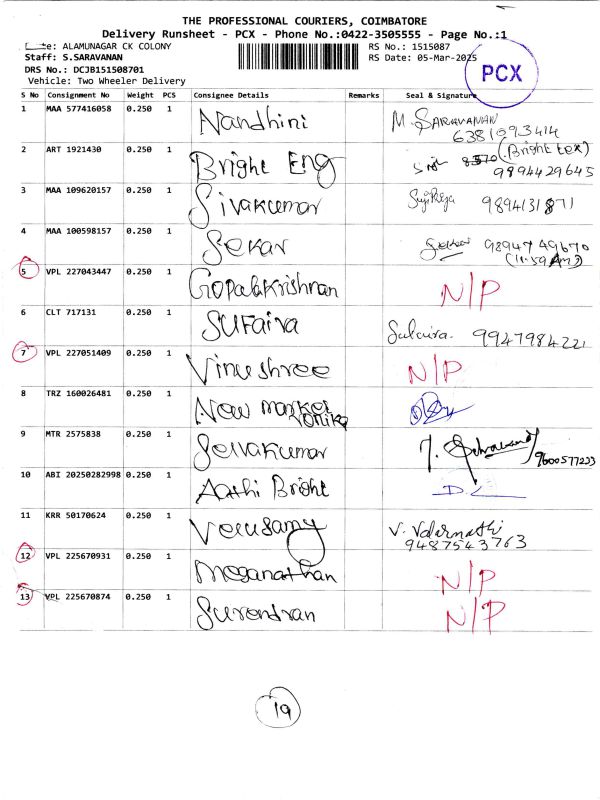 THE PROFESSIONAL COURIERS, COIMBATORE
Delivery Runsheet - PCX - Phone No.:0422-3505555 - Page No.:1
ALAMUNAGAR CK COLONY
RS No.: 1515087
Staff: S.SARAVANAN
RS Date: 05-Mar-2025
DRS No.: DCJB151508701
Vehicle: Two Wheeler Delivery
PCX
S No Consignment No Weight PCS Consignee Details Remarks Seal & Signature
1 MAA 577416058 0.250 1 Nandhini M. SARAVANAN
6381993414
2 ART 1921430 0.250 1 Bright Eng (Bright tex)
9894429645
3 MAA 109620157 0.250 1 Sivakumar 9894131871
4 MAA 100598157 0.250 1 Sekar 9894749670
(11.59 Am)
5 VPL 227043447 0.250 1 Gopalakrishnan N/P
6 CLT 717131 0.250 1 Sufaira 9947984221
7 VPL 227051409 0.250 1 Vinushree N/P
8 TRZ 160026481 0.250 1 New market
9 MTR 2575838 0.250 1 Selvakumar 9600577233
10 ABI 20250282998 0.250 1 Aathi Bright
11 KRR 50170624 0.250 1 Velusamy V. Valarmathi
9487543763
12 VPL 225670931 0.250 1 Meganathan N/P
13 VPL 225670874 0.250 1 Surendran N/P
19